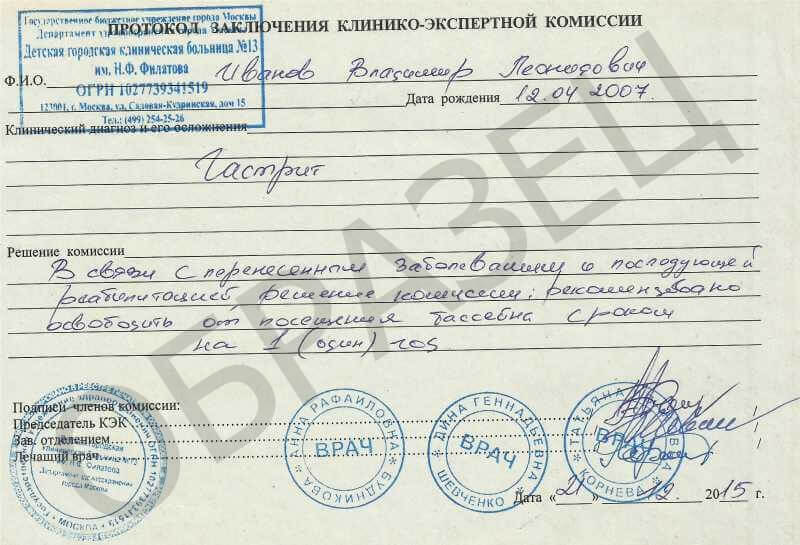 Государственное бюджетное учреждение города Москвы
Детская городская клиническая больница №13
им. Н.Ф. Филатова
ОГРН 1027739341519
123001, г. Москва, ул. Садовая-Кудринская, дом 15
Тел.: (499) 254-25-26
ПРОТОКОЛ ЗАКЛЮЧЕНИЯ КЛИНИКО-ЭКСПЕРТНОЙ КОМИССИИ
Ф.И.О. Иванов Владимир Леонидович
Дата рождения 12.04 2007.
Клинический диагноз и его осложнения
Гастрит
Решение комиссии
В связи с перенесенным заболеванием и последующей
реабилитацией, решение комиссии: рекомендовано
освободить от посещения бассейна сроком
на 1 (один) год
Подписи членов комиссии:
Председатель КЭК
Зав. отделением
Лечащий врач
АННА РАФАИЛОВНА
ВРАЧ
БУДНИКОВА
ДИНА ГЕННАДЬЕВНА
ВРАЧ
ШЕВЧЕНКО
ТАТЬЯНА
ВРАЧ
КОРНЕВА
Дата «21» 12 2015 г.
ОБРАЗЕЦ